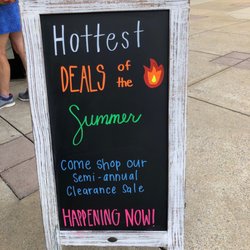 Hottest
DEALS of the
Summer
COME SHOP OUR
Semi-annual
Clearance Sale
HAPPENING NOW!